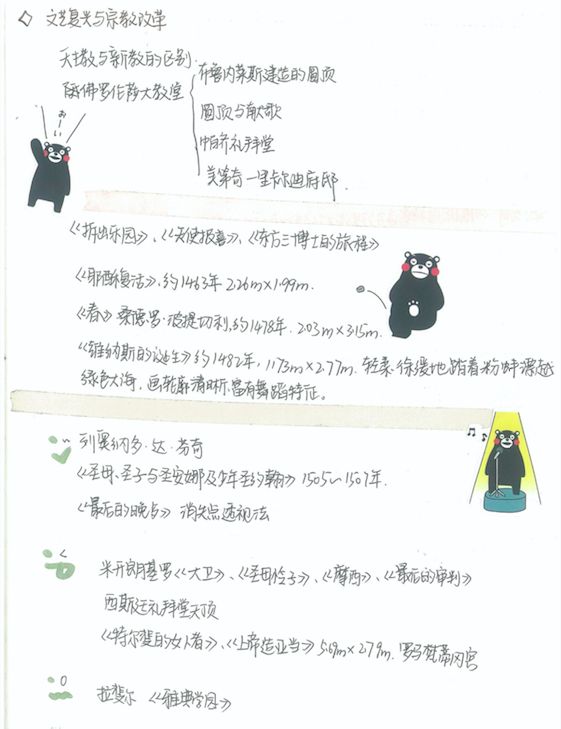 文艺复兴与宗教改革
天主教与新教的区别.
佛罗伦萨大教堂
布鲁内莱斯建造的圆顶
圆顶与颂歌
帕齐礼拜堂
美第奇一里卡尔迪府邸.
おーい
《拆出乐园》、《天使报喜》、《东方三博士的旅程》
《耶酥复活》,约1463年 2.26m×1.99m.
《春》桑德罗·波提切利,约1478年. 2.03m×3.15m.
《维纳斯的诞生》约1482年, 1.73m×2.77m. 轻柔、徐缓地踏着粉蚌漂越
绿色大海, 画轮廓清晰,富有舞蹈特征。
列奥纳多·达·芬奇
《圣母、圣子与圣安娜及少年圣约翰》1505~1507年.
《最后的晚点》 消失点透视法
米开朗基罗《大卫》、《圣母怜子》、《摩西》、《最后的审判》
西斯廷礼拜堂天顶
《特尔斐的女者》、《上帝造亚当》5.69m×2.79m. 罗马梵蒂冈宫
拉斐尔 《雅典学园》